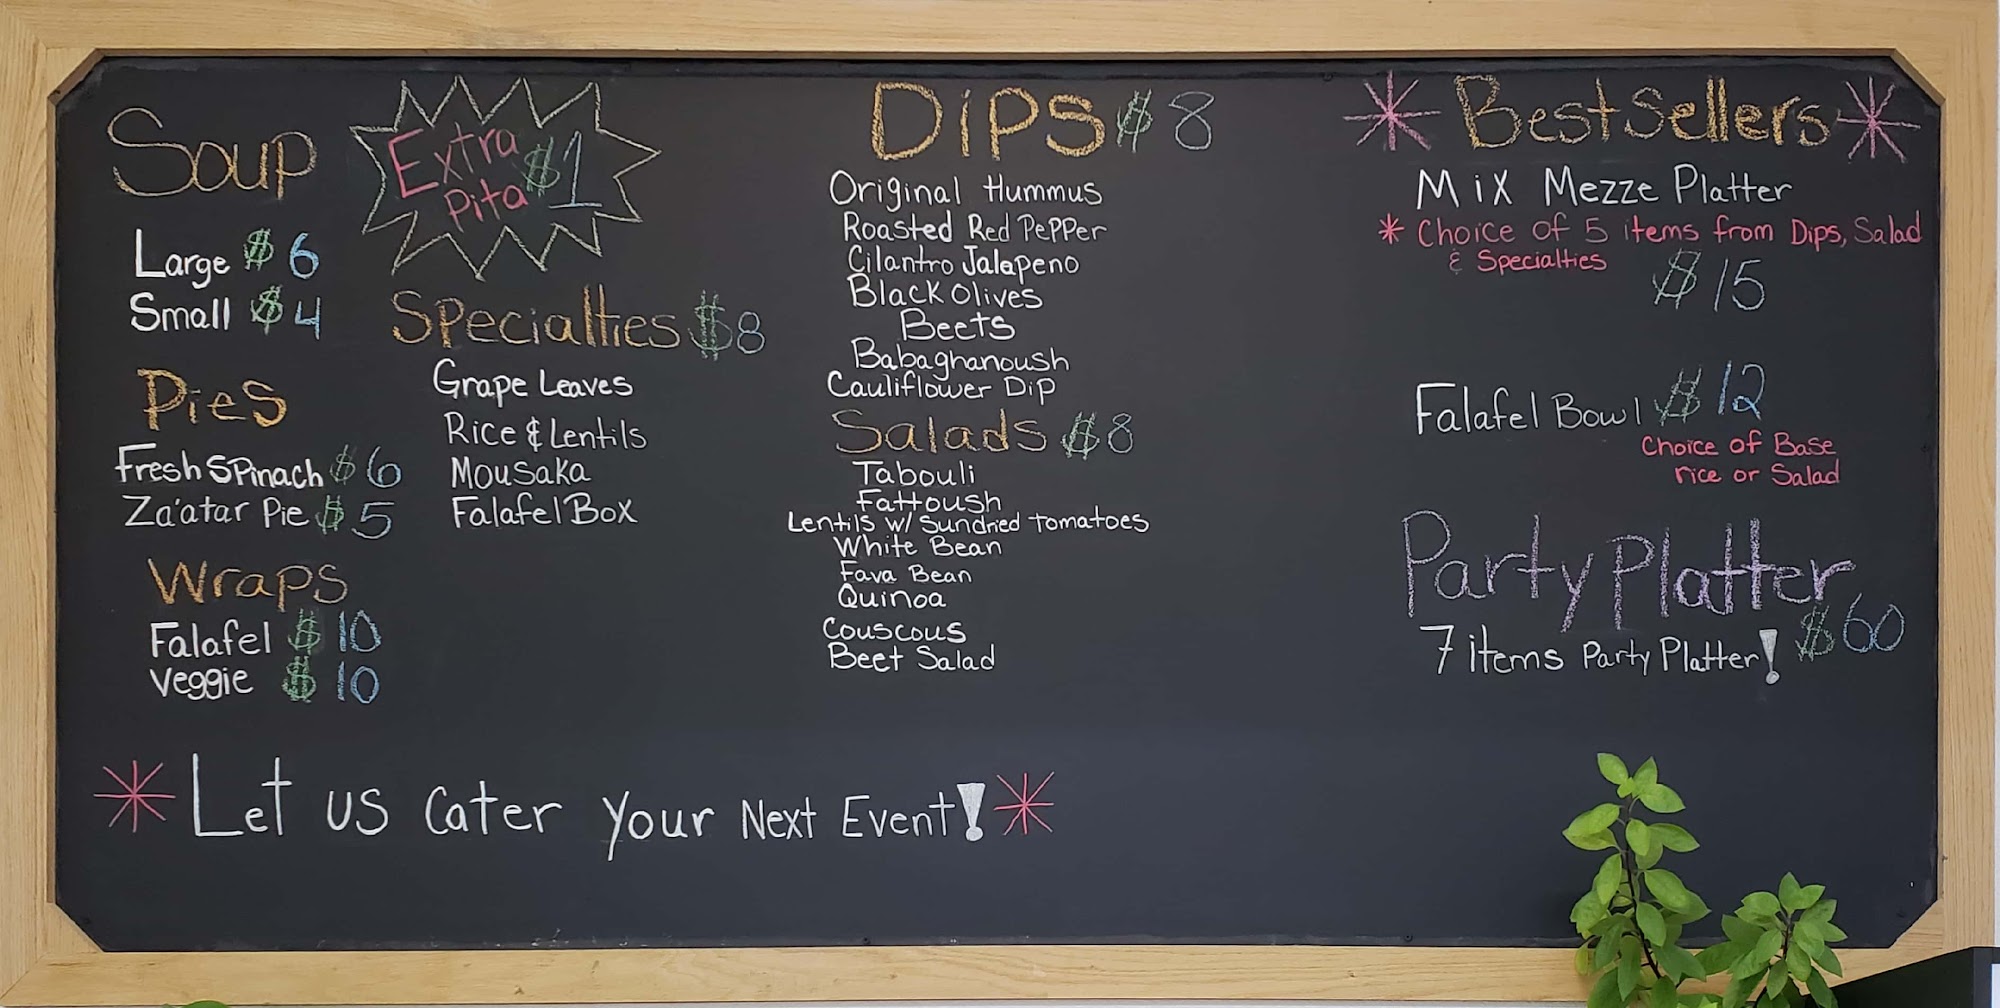 Soup
Large $6
Small $4
Extra
Pita $1
Pies
Fresh Spinach $6
Za'atar Pie $5
Wraps
Falafel $10
Veggie $10
Specialties $8
Grape Leaves
Rice & Lentils
Mousaka
Falafel Box
Dips $8
Original Hummus
Roasted Red Pepper
Cilantro Jalapeno
Black Olives
Beets
Babaghanoush
Cauliflower Dip
Salads $8
Tabouli
Fattoush
Lentils w/ Sundried Tomatoes
White Bean
Fava Bean
Quinoa
Couscous
Beet Salad
* Best Sellers *
Mix Mezze Platter
* Choice of 5 items from Dips, Salad
& Specialties
$15
Falafel Bowl $12
Choice of Base
rice or Salad
Party Platter
7 items Party Platter! $60
* Let us Cater Your Next Event! *